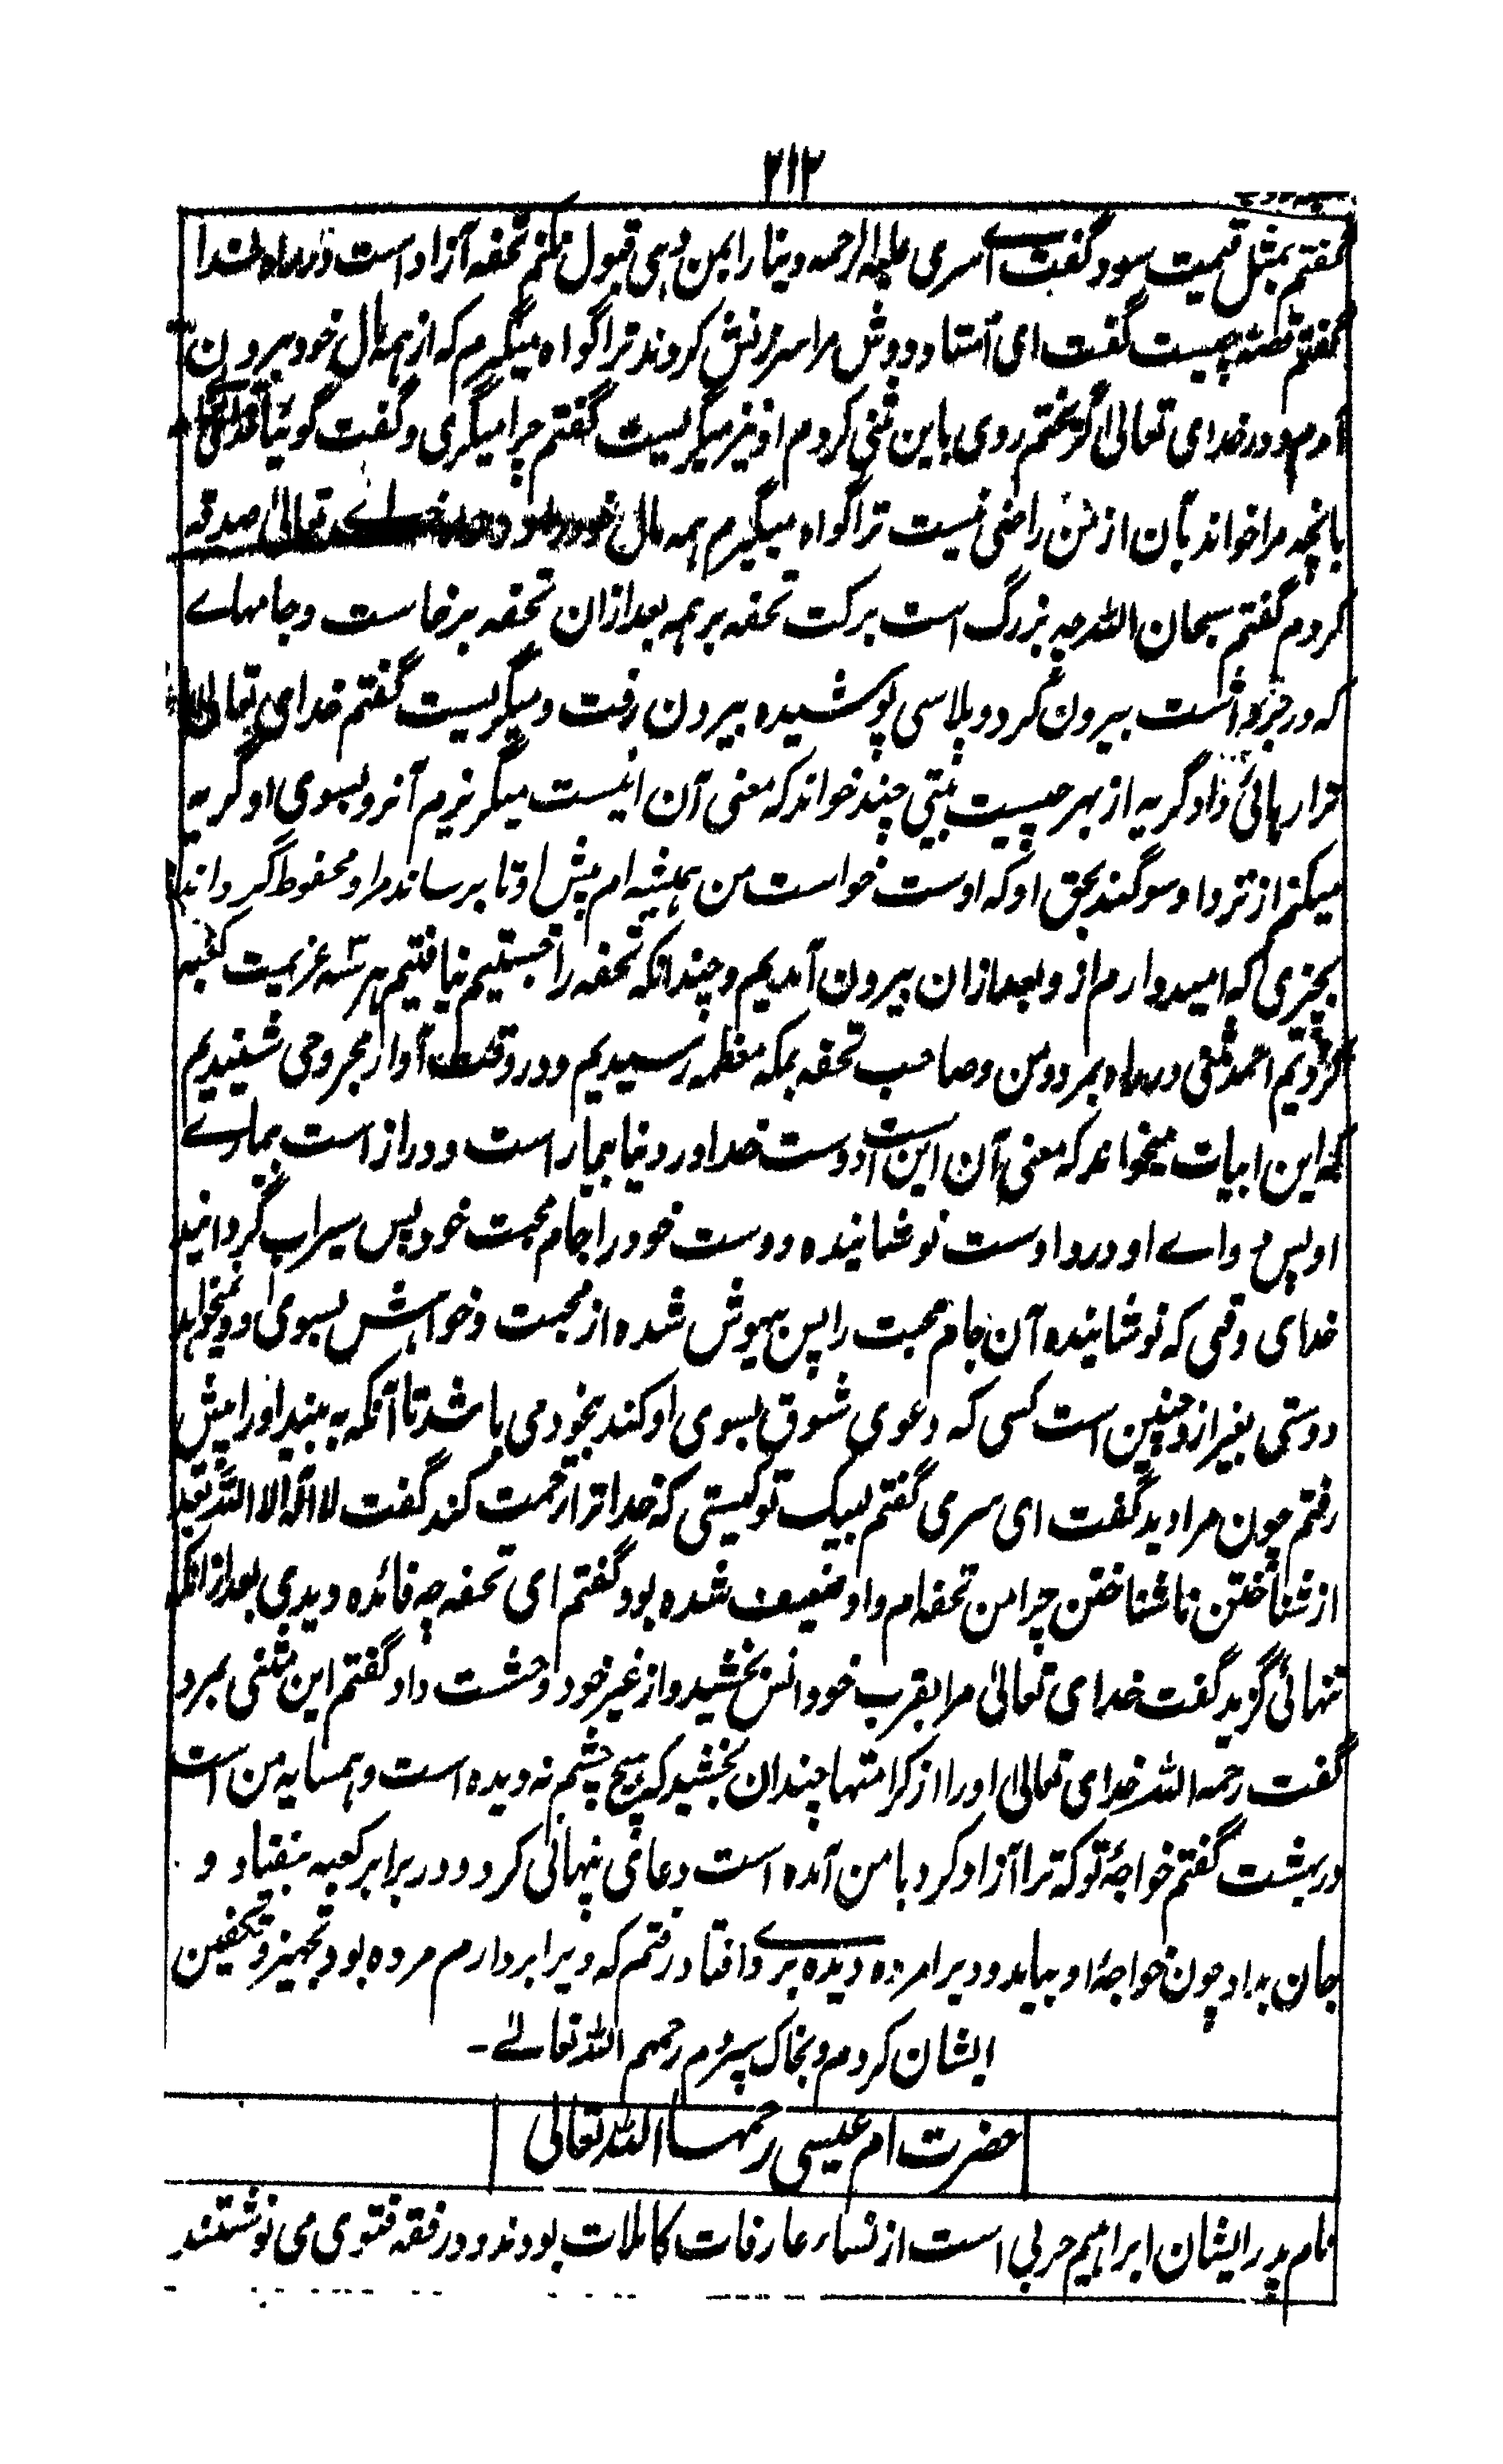 ۲۱۲
گفتم بمثل قیمت سود گفت اے سری علیه الرحمه دینا را بمن دهی قبول نکنم تحفه آزاد است در راه خدا
گفتم قصّه چیست گفت ای استاد دوش مرا سرزنش کردند ترا گواه میگیرم که از همه مال خود بیرون
آمدم و در خدای تعالیٰ گریختم روی باین مثنی کردم او نیز میگریست گفتم چرا میگری و گفت گوئیا
بانچه مرا خواند بآن از من راضی نیست ترا گواه میگیرم همه مال خود در راه خداے تعالیٰ صدقه
کردم گفتم سبحان اللہ چه بزرگ است برکت تحفه بر همه بعد ازان تحفه برخاست و جامهاے
که در بر داشت بیرون کرد و پلاسی پوشیده بیرون رفت و میگریست گفتم خدای تعالیٰ
ترا رهائی داد گریه از بهر چیست بیتی چند خواند که معنی آن اینست میگریزم آنرو بسوی او گریه
میکنم از تردا و سوگند بحق او که اوست خواست من همیشه ام پیش او تا برساند مرا و محفوظ گرداند
بچیزی که امیدوارم ازو بعد ازان بیرون آمدیم و چندانکه تحفه را جستیم نیافتیم هر سه عزیمت کعبه
کردیم احمد مثنی در راه بمرد و من و صاحب تحفه بمکه معظمه رسیدیم و در وقت آواز مجروحی شنیدیم
که این ابیات میخواند که معنی آن این است دوست خدا در دنیا بیمار است و دراز است بیمارے
او پس دواے او درد اوست نوشانیده دوست خود را جام محبت خود پس سیراب گردانید
خدای وقتی که نوشانیده آن جام محبت را پس بیهوش شده از محبت و خواهش بسوی او و نمیخواهد
دوستی بغیر ازو چنین است کسی که دعوی شوق بسوی او کند بیخود می باشد تا آنکه به بیند او را پیش
رفتم چون مرا دید گفت ای سری گفتم لبیک تو کیستی که خدا ترا رحمت کند گفت لا اله الا الله بعد
از شناختن ناشناختن چرا من تحفه ام و او ضعیف شده بود گفتم ای تحفه چه فائده دیدی بعد ازانکه
تنهائی گزید گفت خدای تعالیٰ مرا بقرب خود انس بخشید و از غیر خود وحشت داد گفتم این مثنی بمرد
گفت رحمه اللہ خدای تعالیٰ او را از کرامتها چندان بخشید که هیچ چشم نه دیده است و همسایه من است
در بهشت گفتم خواجۂ تو که ترا آزاد کرد با من آمده است دعائی پنهانی کرد و در برابر کعبه بیفتاد و
جان بداد چون خواجۂ او بیامد و دیرا مرده دیده بر دے افتاد رفتم که ویرا بردارم مرده بود تجهیز و تکفین
ایشان کردم و بخاک سپردم رحمهم اللہ تعالےٰ۔
حضرت ام عیسی رحمها اللہ تعالی
نام پدر ایشان ابراهیم حربی است از نساء عارفات کاملات بودند و در فقه فتوی می نوشتند